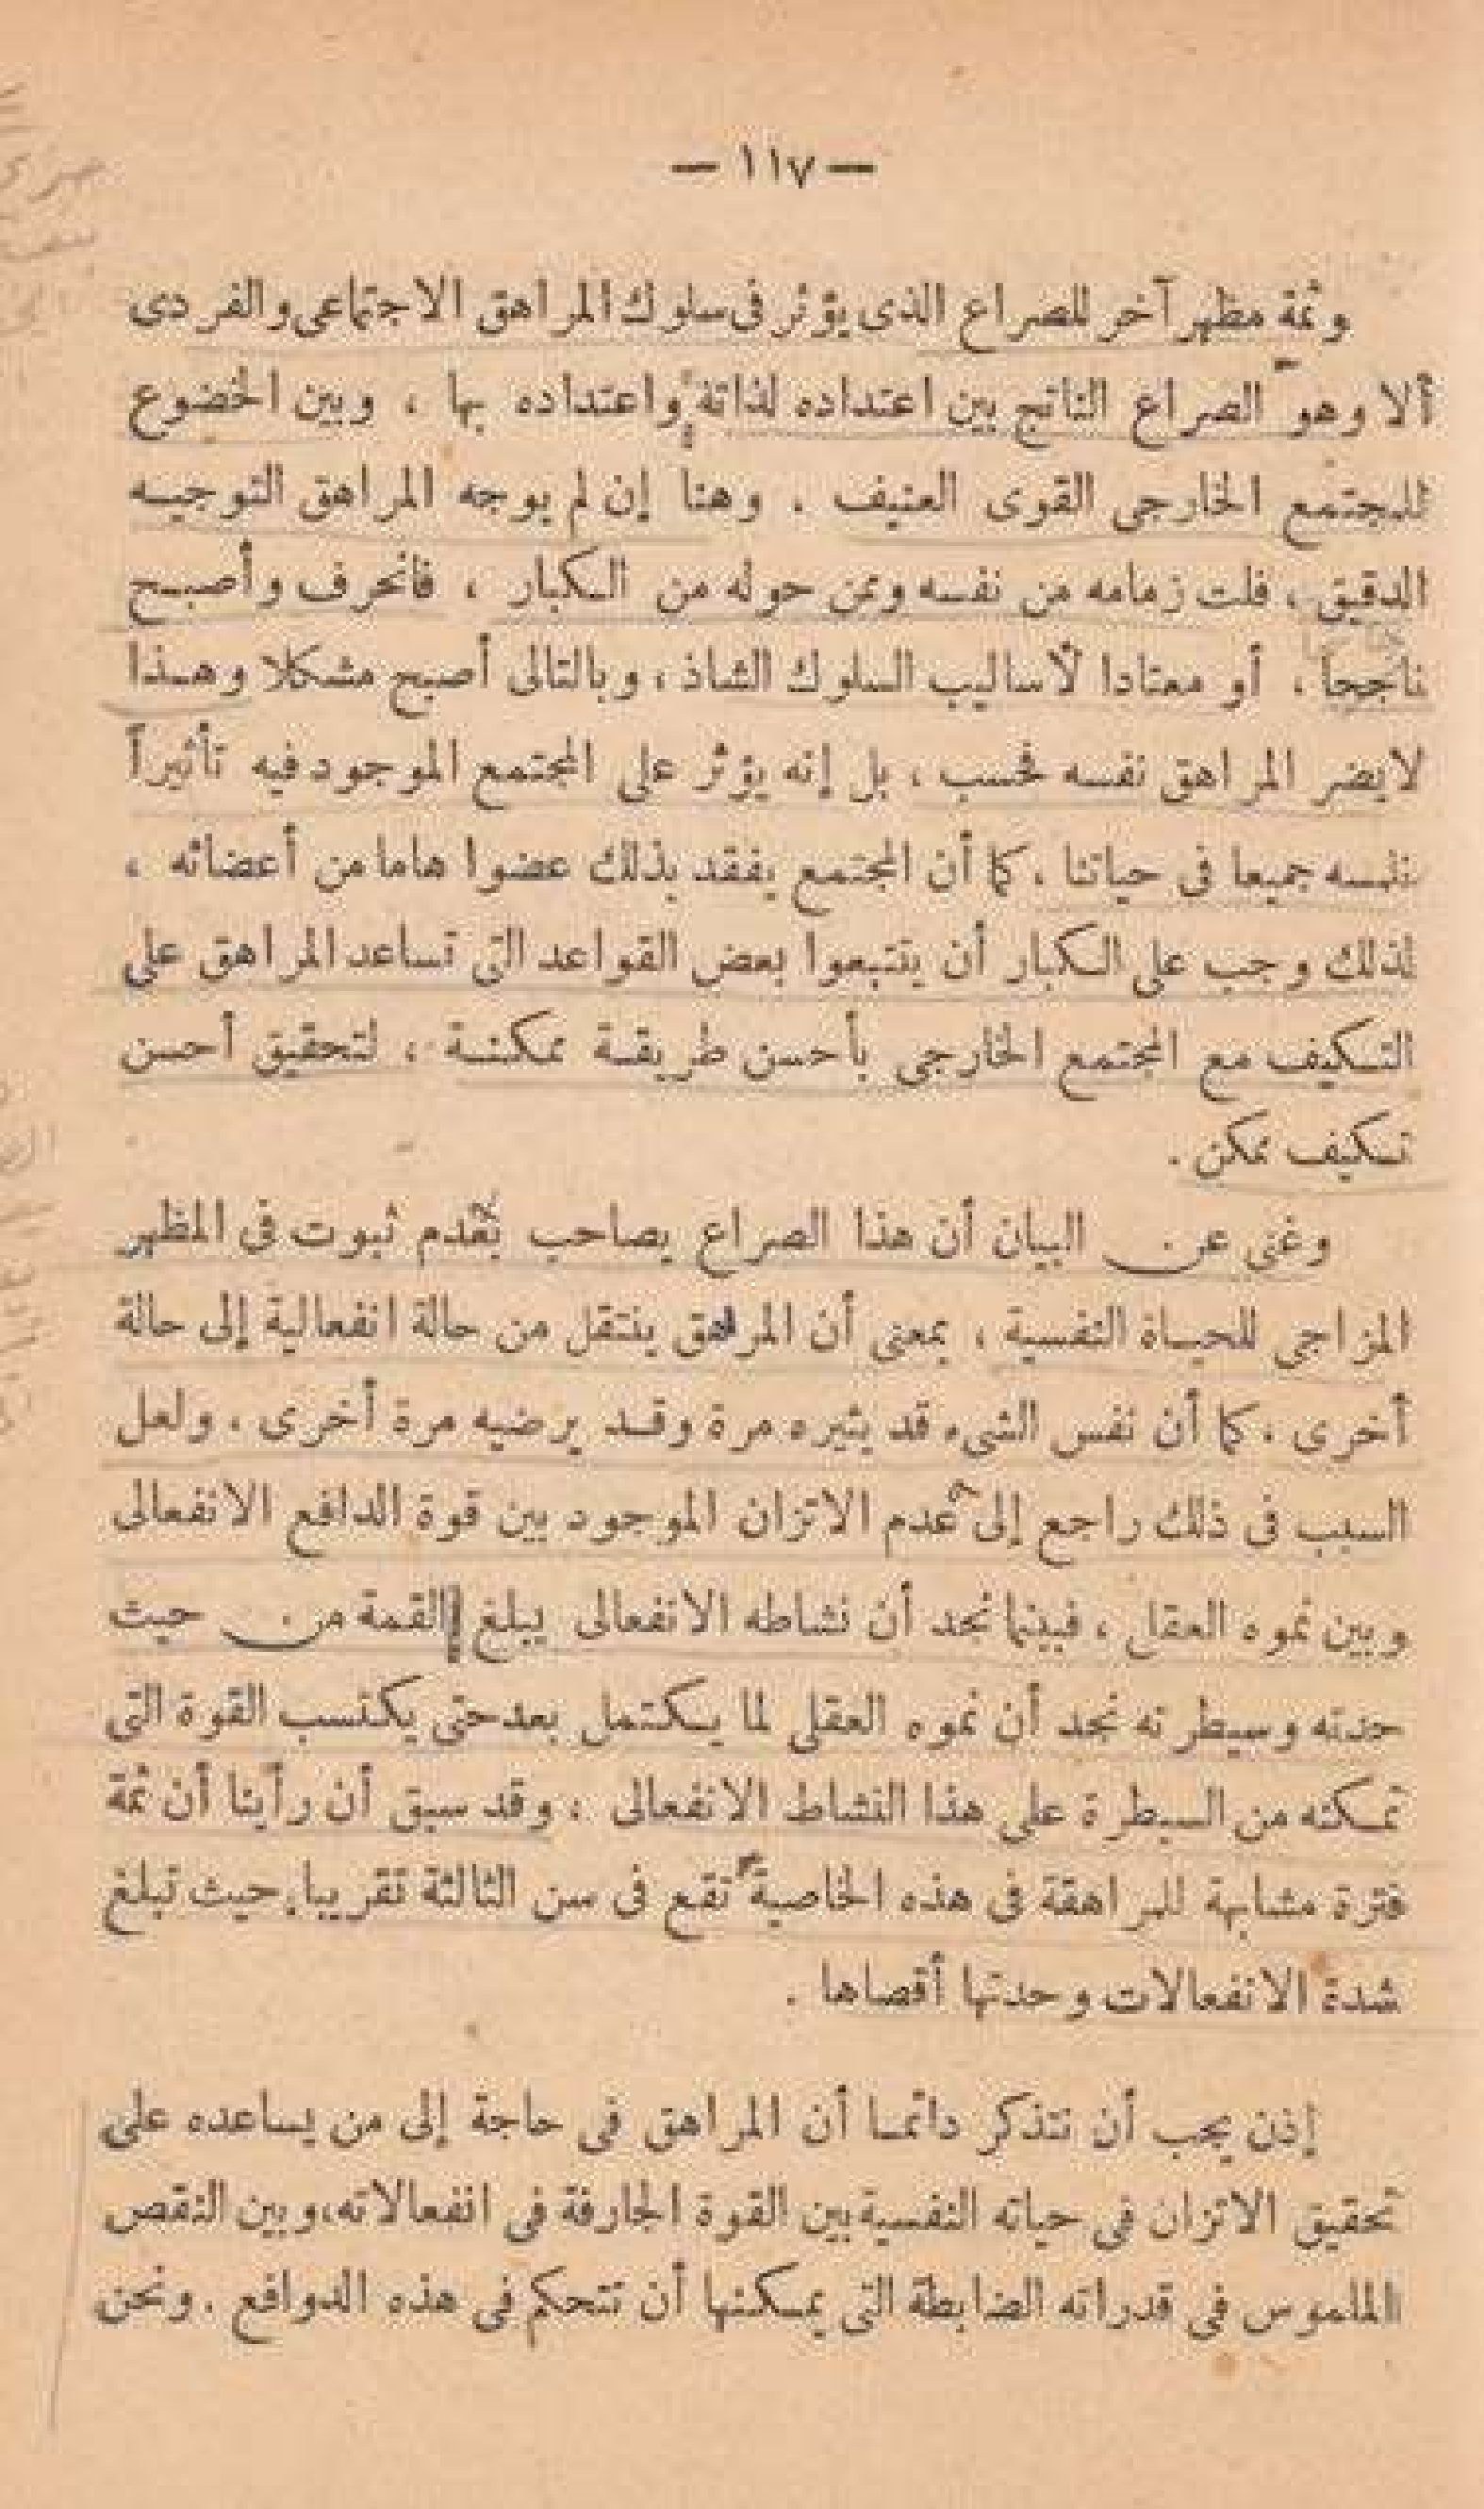 — ١١٧ —
وثمة مظهر آخر للصراع الذى يؤثر فى سلوك المراهق الاجتماعى والفردى
ألا وهو الصراع الناتج بين اعتداده لذاتة واعتداده بها ، وبين الخضوع
للمجتمع الخارجى القوى العنيف . وهنا إن لم يوجه المراهق التوجيه
الدقيق ، فلت زمامه من نفسه وممن حوله من الكبار ، فانحرف وأصبح
ناجحا ، أو معتادا لأساليب السلوك الشاذ ، وبالتالى أصبح مشكلا وهذا
لايضر المراهق نفسه فحسب ، بل إنه يؤثر على المجتمع الموجود فيه تأثيراً
نلمسه جميعا فى حياتنا ، كما أن المجتمع يفقد بذلك عضوا هاما من أعضائه ،
لذلك وجب على الكبار أن يتتبعوا بعض القواعد التى تساعد المراهق على
التكيف مع المجتمع الخارجى بأحسن طريقة ممكنة ، لتحقيق أحسن
تكيف ممكن .
وغنى عن البيان أن هذا الصراع يصاحب بعدم ثبوت فى المظهر
المزاجى للحياة النفسية ، بمعنى أن المراهق ينتقل من حالة انفعالية إلى حالة
أخرى . كما أن نفس الشىء قد يثيره مرة وقد يرضيه مرة أخرى ، ولعل
السبب فى ذلك راجع إلى عدم الاتزان الموجود بين قوة الدافع الانفعالى
وبين نموه العقل ، فبينما نجد أن نشاطه الانفعالى يبلغ القمة من حيث
حدته وسيطرته نجد أن نموه العقلى لما يكتمل بعد حتى يكتسب القوة التى
تمكنه من السيطرة على هذا النشاط الانفعالى ، وقد سبق أن رأينا أن ثمة
فترة مشابهة للمراهقة فى هذه الخاصية تقع فى سن الثالثة تقريبا ، حيث تبلغ
شدة الانفعالات وحدتها أقصاها .
إذن يجب أن نتذكر دائما أن المراهق فى حاجة إلى من يساعده على
تحقيق الاتزان فى حياته النفسية بين القوة الجارفة فى انفعالاته ، وبين النقص
الملموس فى قدراته الضابطة التى يمكنها أن تتحكم فى هذه الدوافع . ونحن